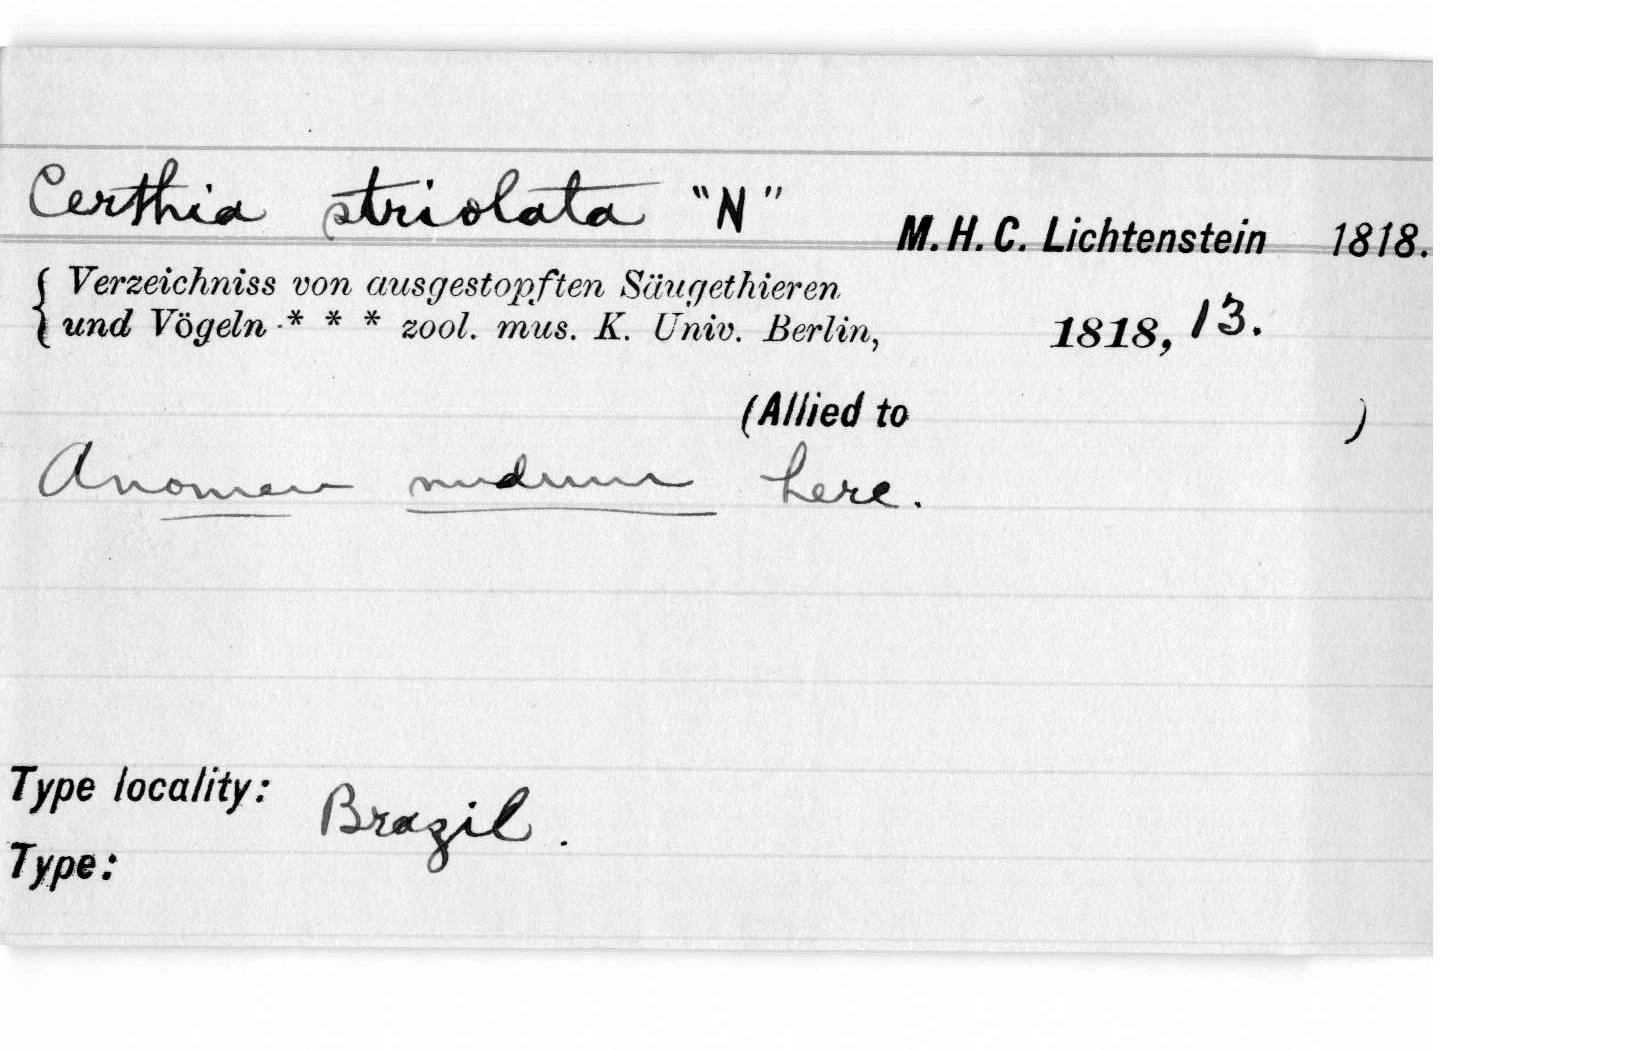 Certhia striolata "N" M. H. C. Lichtenstein 1818.
{ Verzeichniss von ausgestopften Säugethieren
und Vögeln * * * zool. mus. K. Univ. Berlin, 1818, 13.
(Allied to )
A nomen nudum here.
Type locality: Brazil.
Type: